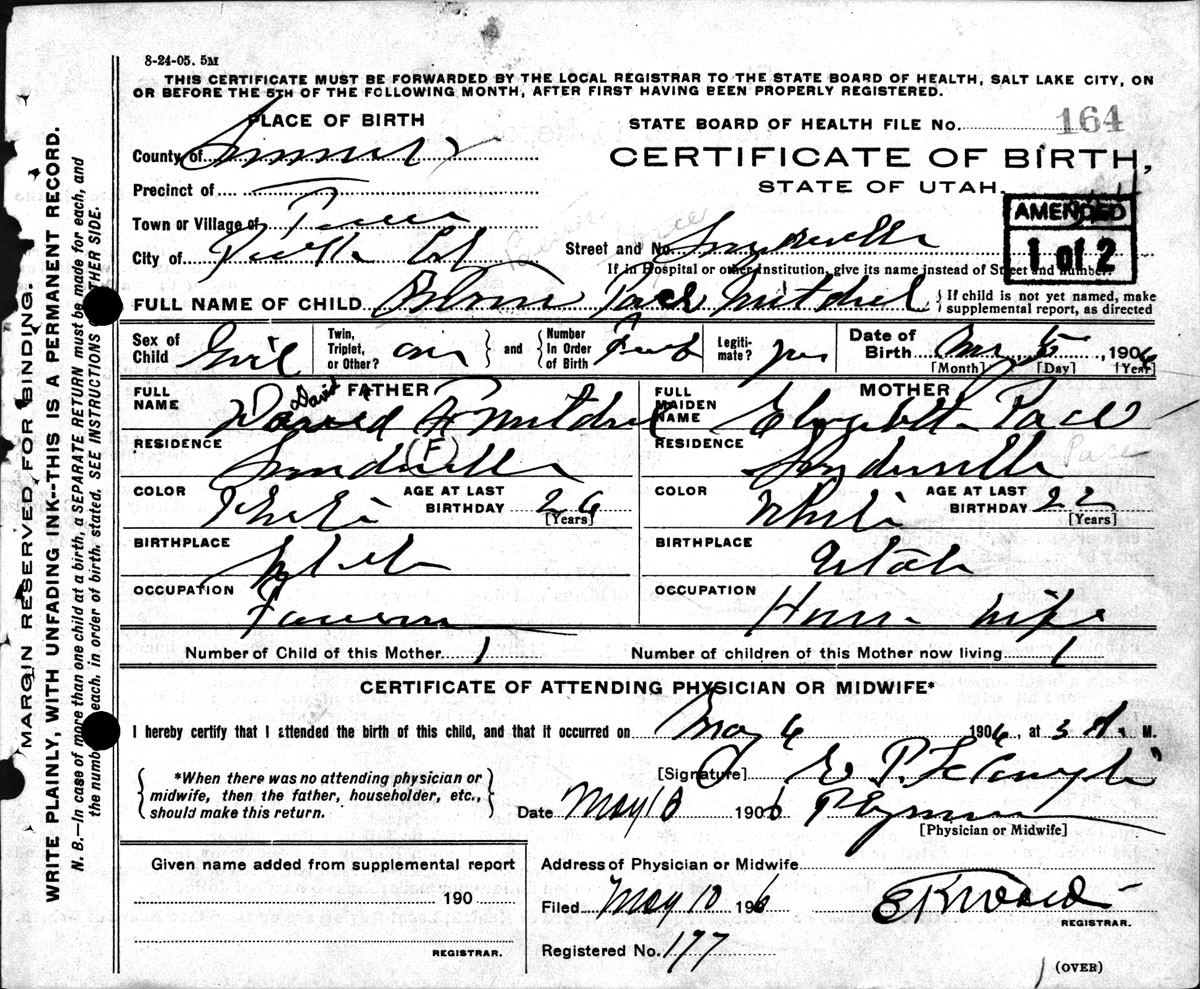 8-24-05. 5M
THIS CERTIFICATE MUST BE FORWARDED BY THE LOCAL REGISTRAR TO THE STATE BOARD OF HEALTH, SALT LAKE CITY, ON
OR BEFORE THE 5TH OF THE FOLLOWING MONTH, AFTER FIRST HAVING BEEN PROPERLY REGISTERED.
PLACE OF BIRTH
STATE BOARD OF HEALTH FILE No. 164
County of Summit
CERTIFICATE OF BIRTH,
STATE OF UTAH.
Precinct of
AMENDED
1 of 2
Town or Village of
City of
Street and No. Snyderville
If in Hospital or other Institution, give its name instead of Street and number.
FULL NAME OF CHILD Pace Mitchel
{If child is not yet named, make
supplemental report, as directed
Sex of Child Girl
Twin, Triplet, or Other? } and { Number In Order of Birth
Legitimate? yes
Date of Birth May 6, 1906
[Month] [Day] [Year]
FATHER
FULL NAME David A Mitchel
David
RESIDENCE Snyderville
F
COLOR White
AGE AT LAST BIRTHDAY 26
[Years]
BIRTHPLACE Utah
OCCUPATION Farmer
MOTHER
FULL MAIDEN NAME Elizabeth Pace
RESIDENCE Snyderville
Pace
COLOR White
AGE AT LAST BIRTHDAY 22
[Years]
BIRTHPLACE Utah
OCCUPATION House wife
Number of Child of this Mother 1
Number of children of this Mother now living 1
CERTIFICATE OF ATTENDING PHYSICIAN OR MIDWIFE*
I hereby certify that I attended the birth of this child, and that it occurred on May 6 1906, at 3 A. M.
{*When there was no attending physician or
midwife, then the father, householder, etc.,
should make this return.}
[Signature] E P. Le
Date May 10 1906
[Physician or Midwife]
Given name added from supplemental report
190
REGISTRAR.
Address of Physician or Midwife
Filed May 10 1906
REGISTRAR.
Registered No. 177
(OVER)
MARGIN RESERVED FOR BINDING.
WRITE PLAINLY, WITH UNFADING INK--THIS IS A PERMANENT RECORD.
N. B.—In case of more than one child at a birth, a SEPARATE RETURN must be made for each, and
the number of each, in order of birth, stated. SEE INSTRUCTIONS ON OTHER SIDE.